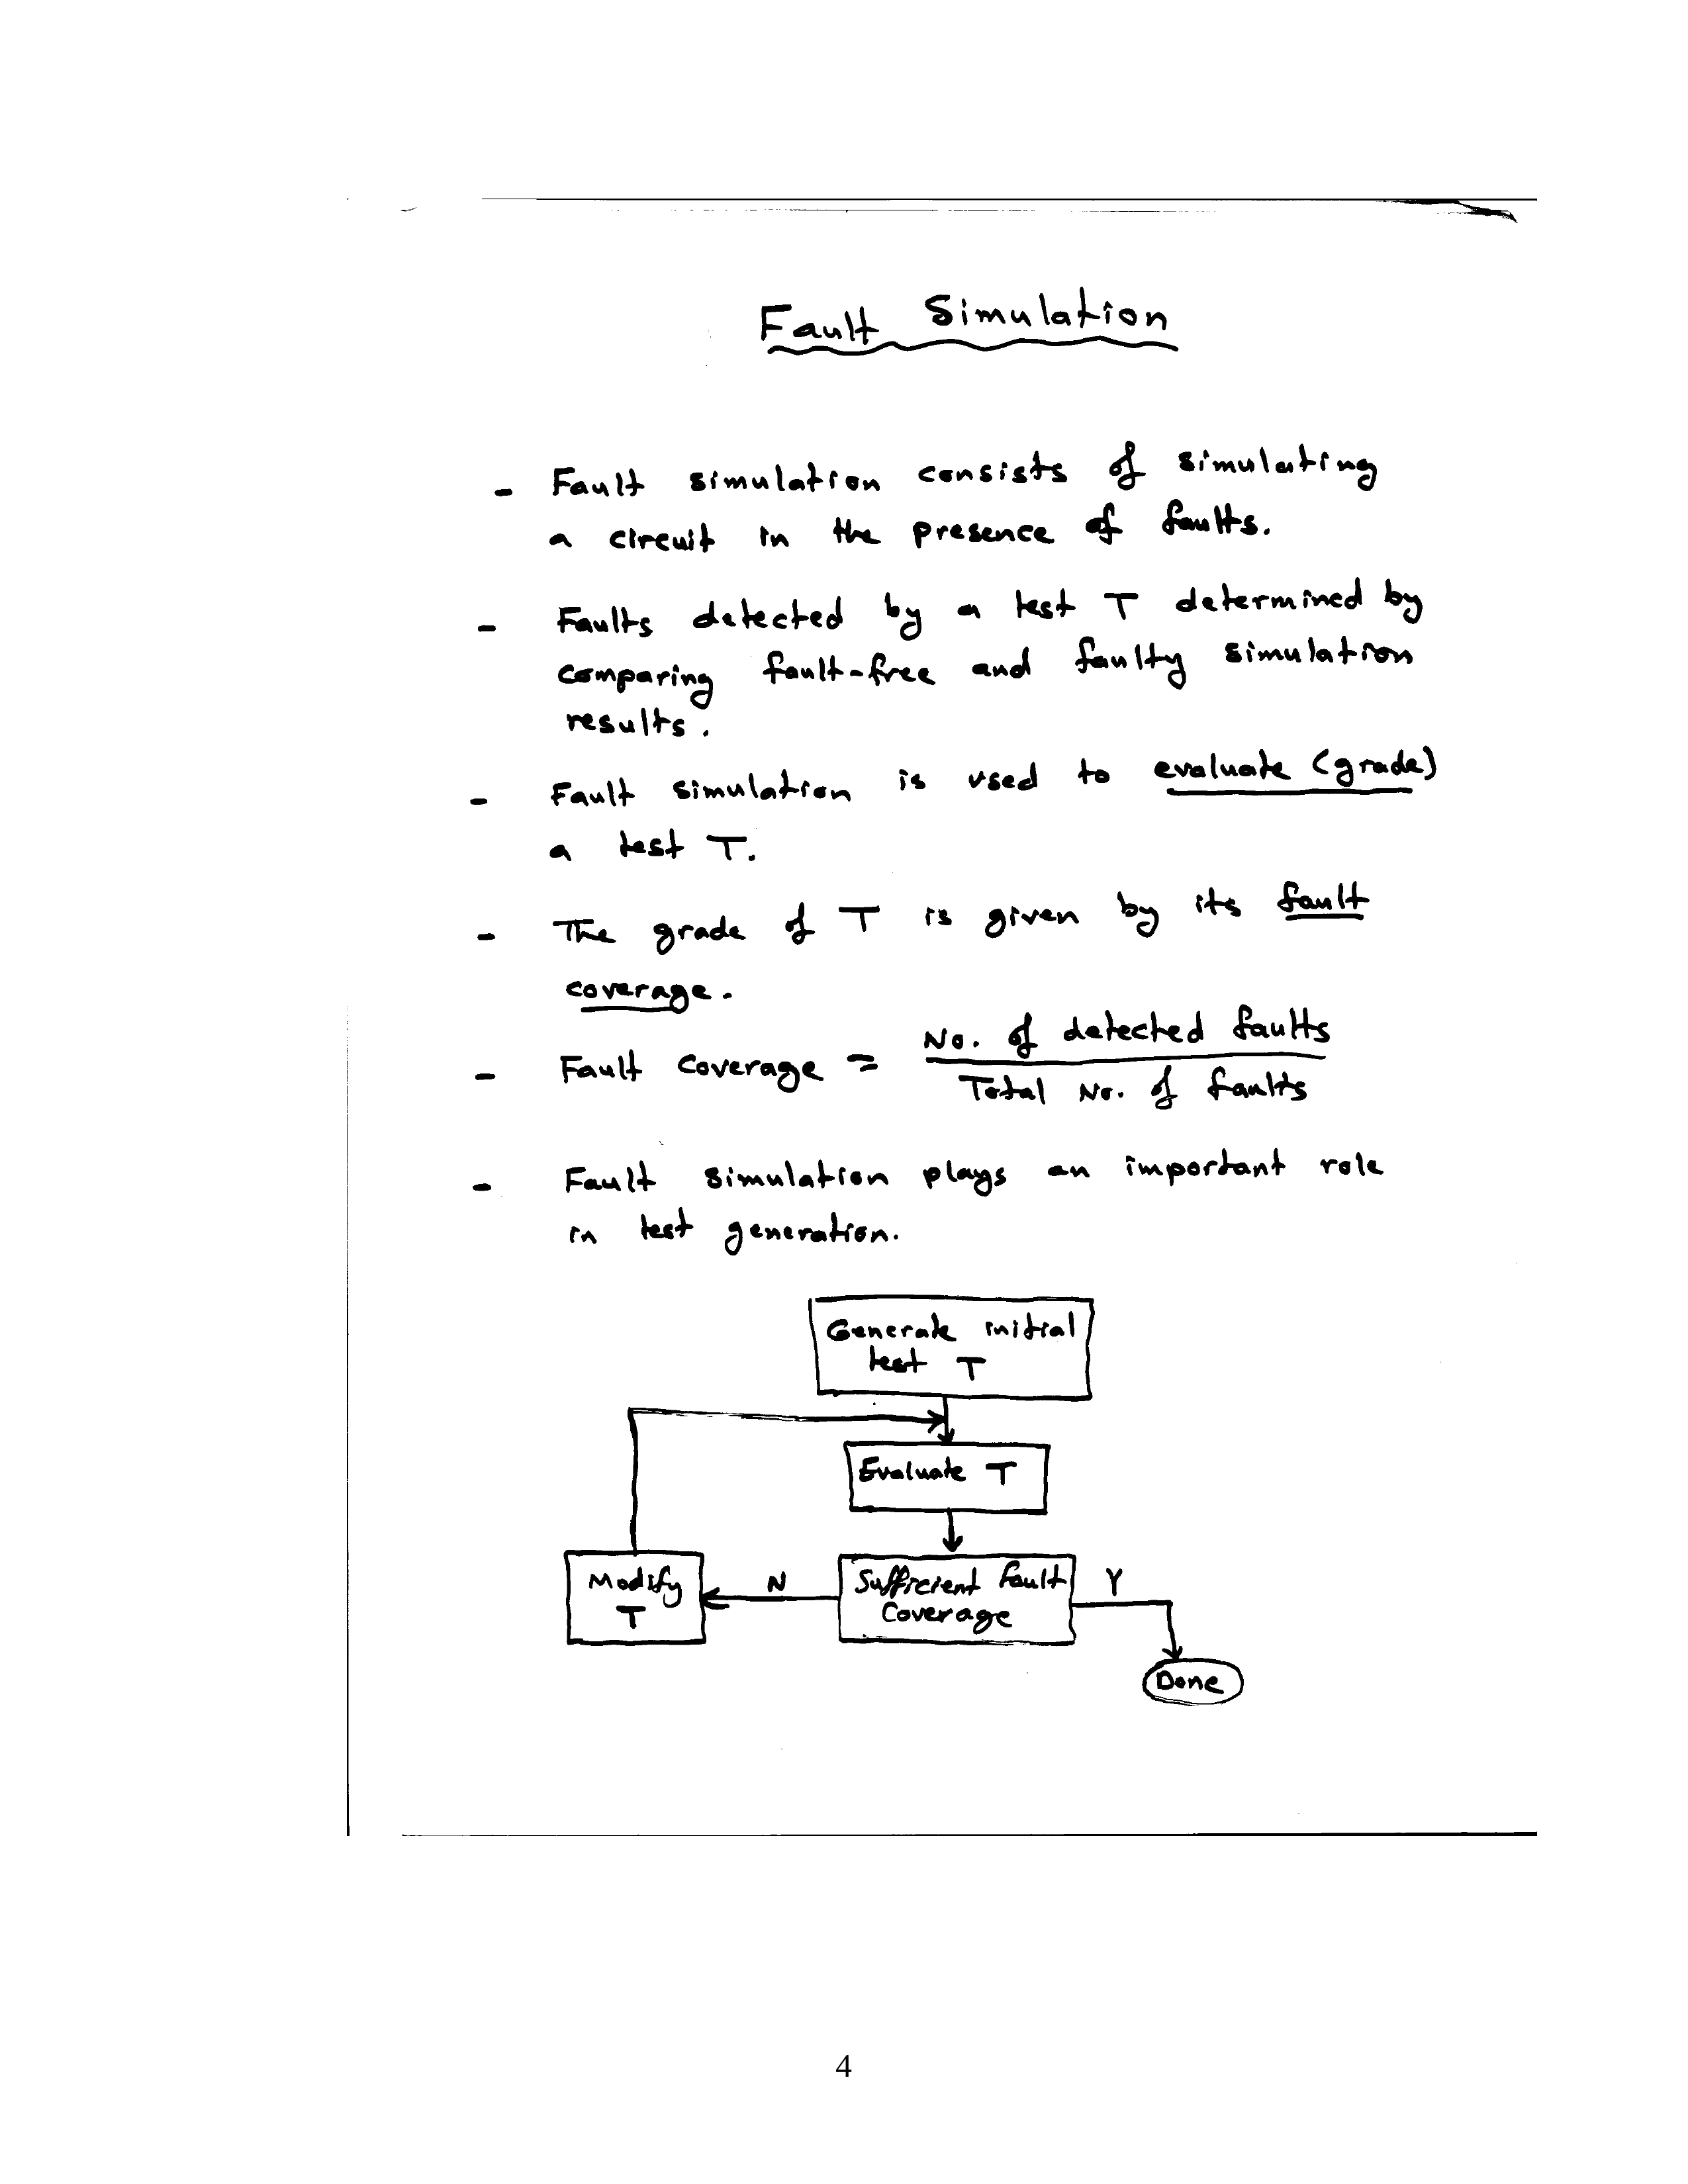 Fault Simulation
- Fault simulation consists of simulating
a circuit in the presence of faults.
- Faults detected by a test T determined by
comparing fault-free and faulty simulation
results.
- Fault simulation is used to evaluate (grade)
a test T.
- The grade of T is given by its fault
coverage.
- Fault Coverage = No. of detected faults
Total No. of faults
- Fault simulation plays an important role
in test generation.
Generate initial
test T
Evaluate T
Modify
T
N
Sufficient fault
Coverage
Y
Done
4